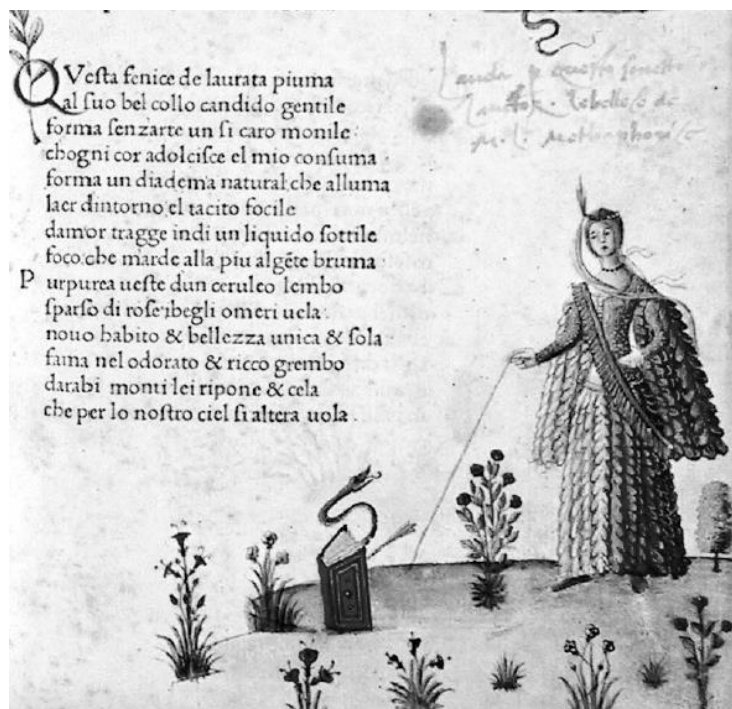 QVesta fenice de laurata piuma
al ſuo bel collo candido gentile
forma ſenzarte un ſi caro monile:
chogni cor adolciſce el mio conſuma.
forma un diadema natural che alluma
laer dintorno el tacito focile
damor tragge indi un liquido ſottile
foco che marde alla piu algẽte bruma
Purpurea ueſte dun ceruleo lembo
ſparſo di roſe ibegli omeri uela.
nouo habito & bellezza unica & ſola
fama nel odorato & ricco grembo
darabi monti lei ripone & cela
che per lo noſtro ciel ſi altera uola.
Lauda questo sonetto